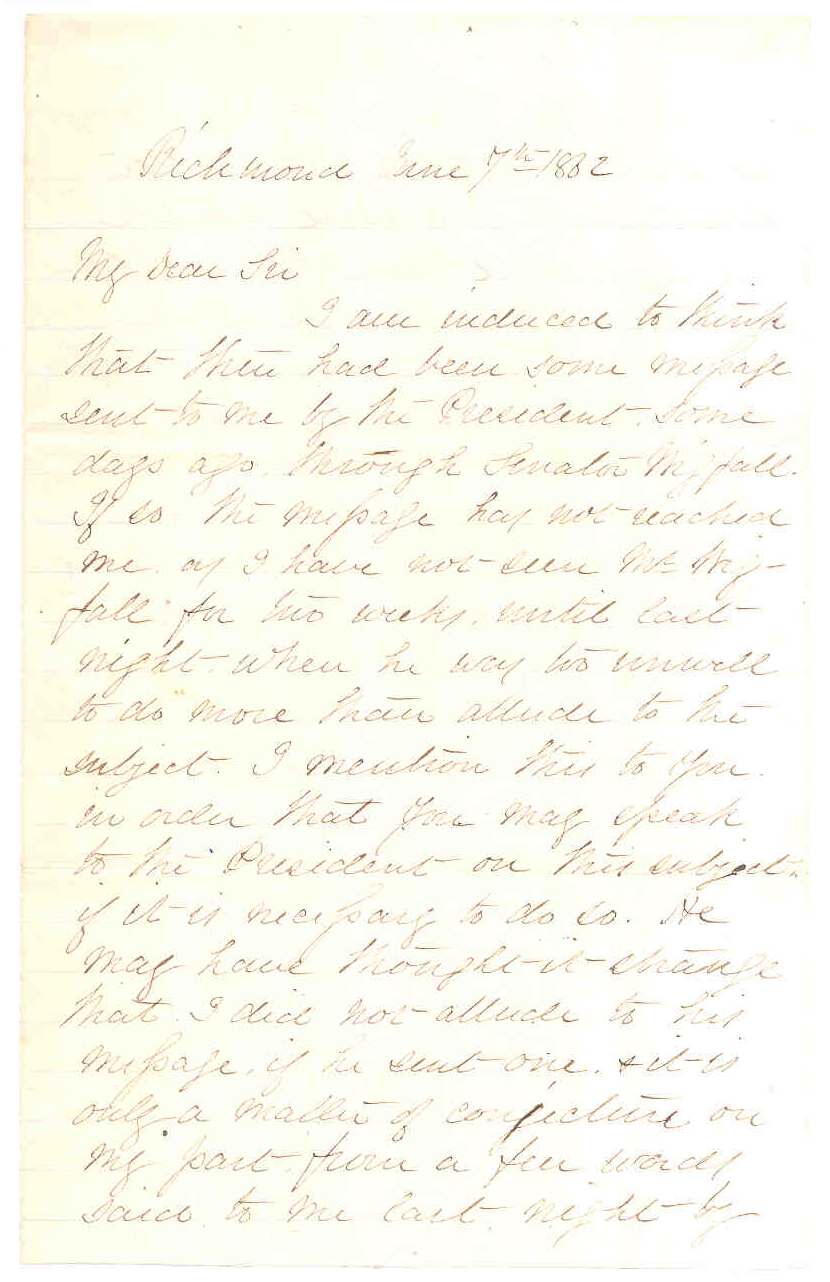 Richmond June 7th 1862
My Dear Sir
I am induced to think
that there had been some message
sent to me by the President, some
days ago, through Senator Wigfall.
If so the message has not reached
me, as I have not seen Mr Wig-
fall for two weeks, until last
night, when he was too unwell
to do more than allude to the
subject. I mention this to you
in order that you may speak
to the President on this subject,
if it is necessary to do so. He
may have thought it strange
that I did not allude to his
message, if he sent one, & it is
only a matter of conjecture on
my part, from a few words
said to me last night by